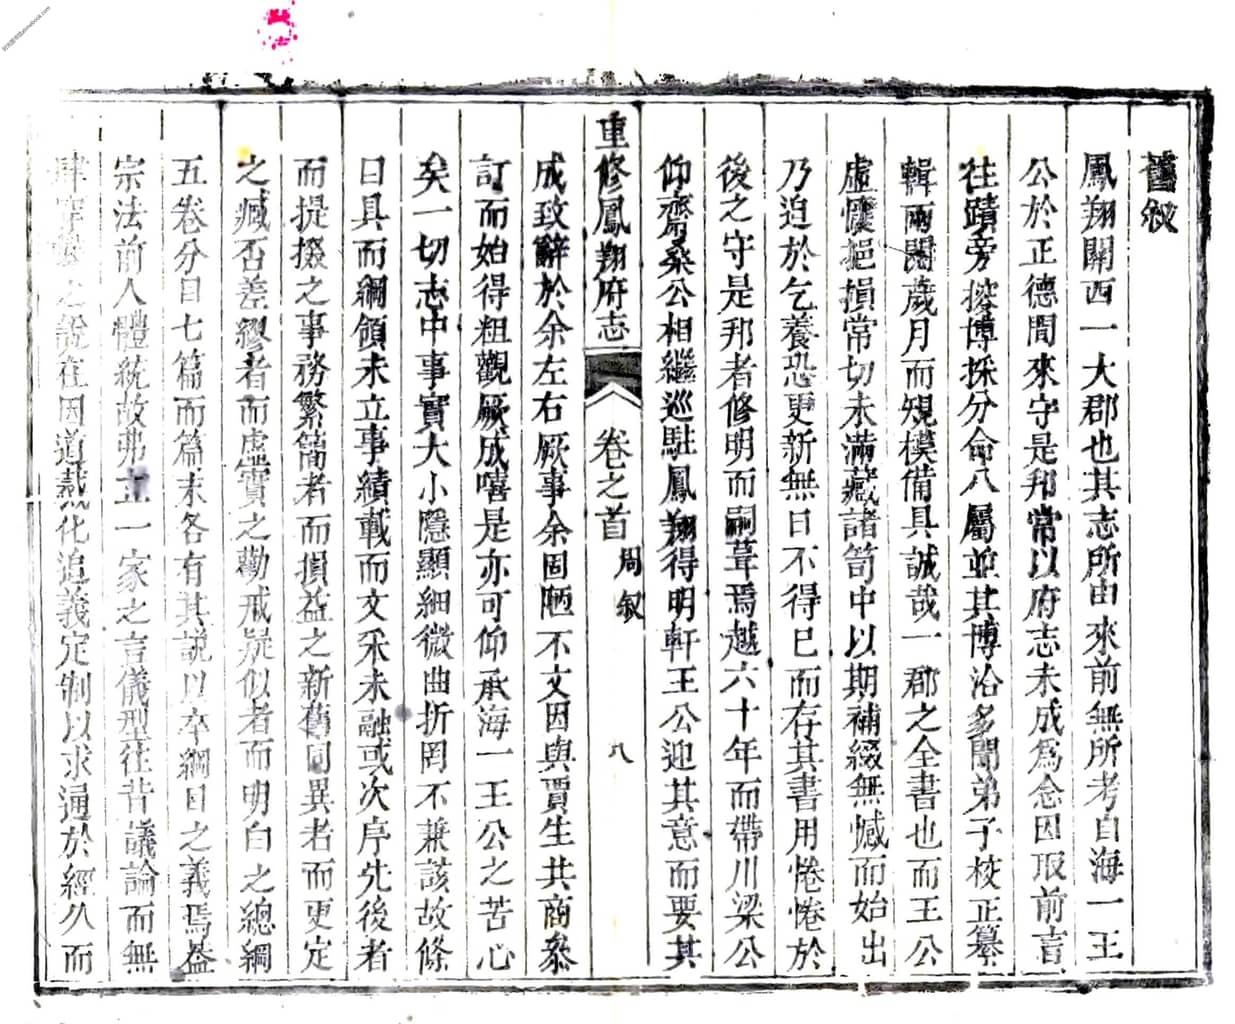 舊敘
鳳翔關西一大郡也其志所由來前無所考自海一王
公於正德間來守是邦常以府志未成為念因取前言
往蹟旁搜博採分命八屬並其博洽多聞弟子校正纂
輯兩閱歲月而規模備具誠哉一郡之全書也而王公
虛懷挹損常切未滿藏諸笥中以期補綴無憾而始出
乃迫於乞養恐更新無日不得已而存其書用惓惓於
後之守是邦者修明而嗣葺焉越六十年而帶川梁公
仰齋桑公相繼巡駐鳳翔得明軒王公迎其意而要其
重修鳳翔府志 卷之首 周敘 八
成致辭於余左右厥事余固陋不文因與賈生共商叅
訂而始得粗觀厥成嘻是亦可仰承海一王公之苦心
矣一切志中事實大小隱顯細微曲折罔不兼該故條
目具而綱領未立事績載而文采未融或次序先後者
而提掇之事務繁簡者而損益之新舊同異者而更定
之臧否差繆者而虛實之勸戒疑似者而明白之總綱
五卷分目七篇而篇末各有其說以卒綱目之義焉蓋
宗法前人體統故弗立一家之言儀型往昔議論而無
肆穿鑿之說在因道裁化追義定制以求通於經久而